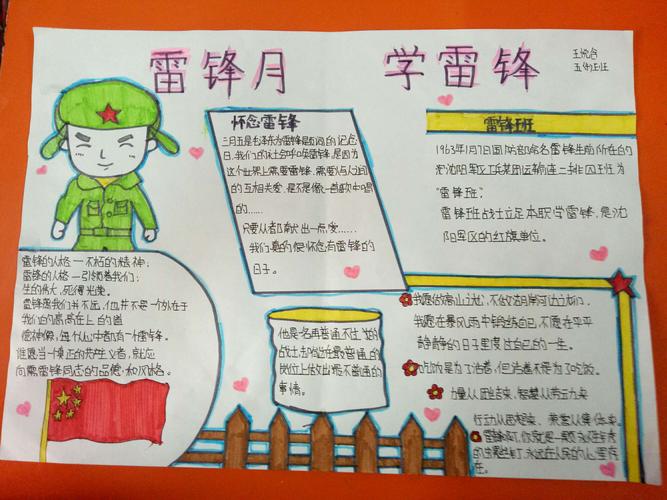 雷锋月 学雷锋
五(4)班
怀念雷锋
三月五是毛泽东为雷锋同志题词的纪念
日,我们的社会呼唤雷锋,是因为
这个世界上需要雷锋,需要人与人之间
的互相关爱,是不是像一首歌中唱
的……
只要人都献出一点爱……
我们真的很怀念有雷锋的
日子。
雷锋班
1963年1月7日国防部命名雷锋生前所在的
沈阳军区工兵某团运输连二排四班为
"雷锋班"
雷锋班战士立足本职学雷锋,是沈
阳军区的红旗单位。
雷锋的人格一不朽的精神;
雷锋的人格一引领着我们;
生的伟大,死得光荣。
雷锋离我们并不远,他并不是一个
我们的高高在上的
神像,每个人心中都有一个雷锋。
谁愿当一个真正的共产主义者,就应
向雷锋同志的品德和风格。
他是一名再普通不过的
战士,却能在最普通的
岗位上做出很不普通的
事情。
我愿做高山之松,不做湖河边之柳;
我愿在暴风雨中锻炼自己,不愿在平平
静静的日子里度过自己的一生。
吃饭是为了活着,但活着不是为了吃饭。
力量从团结来,智慧从劳动来
行动从思想来,荣誉从集体来。
雷锋啊,你就是一颗永
永远在人民的心里存
在。